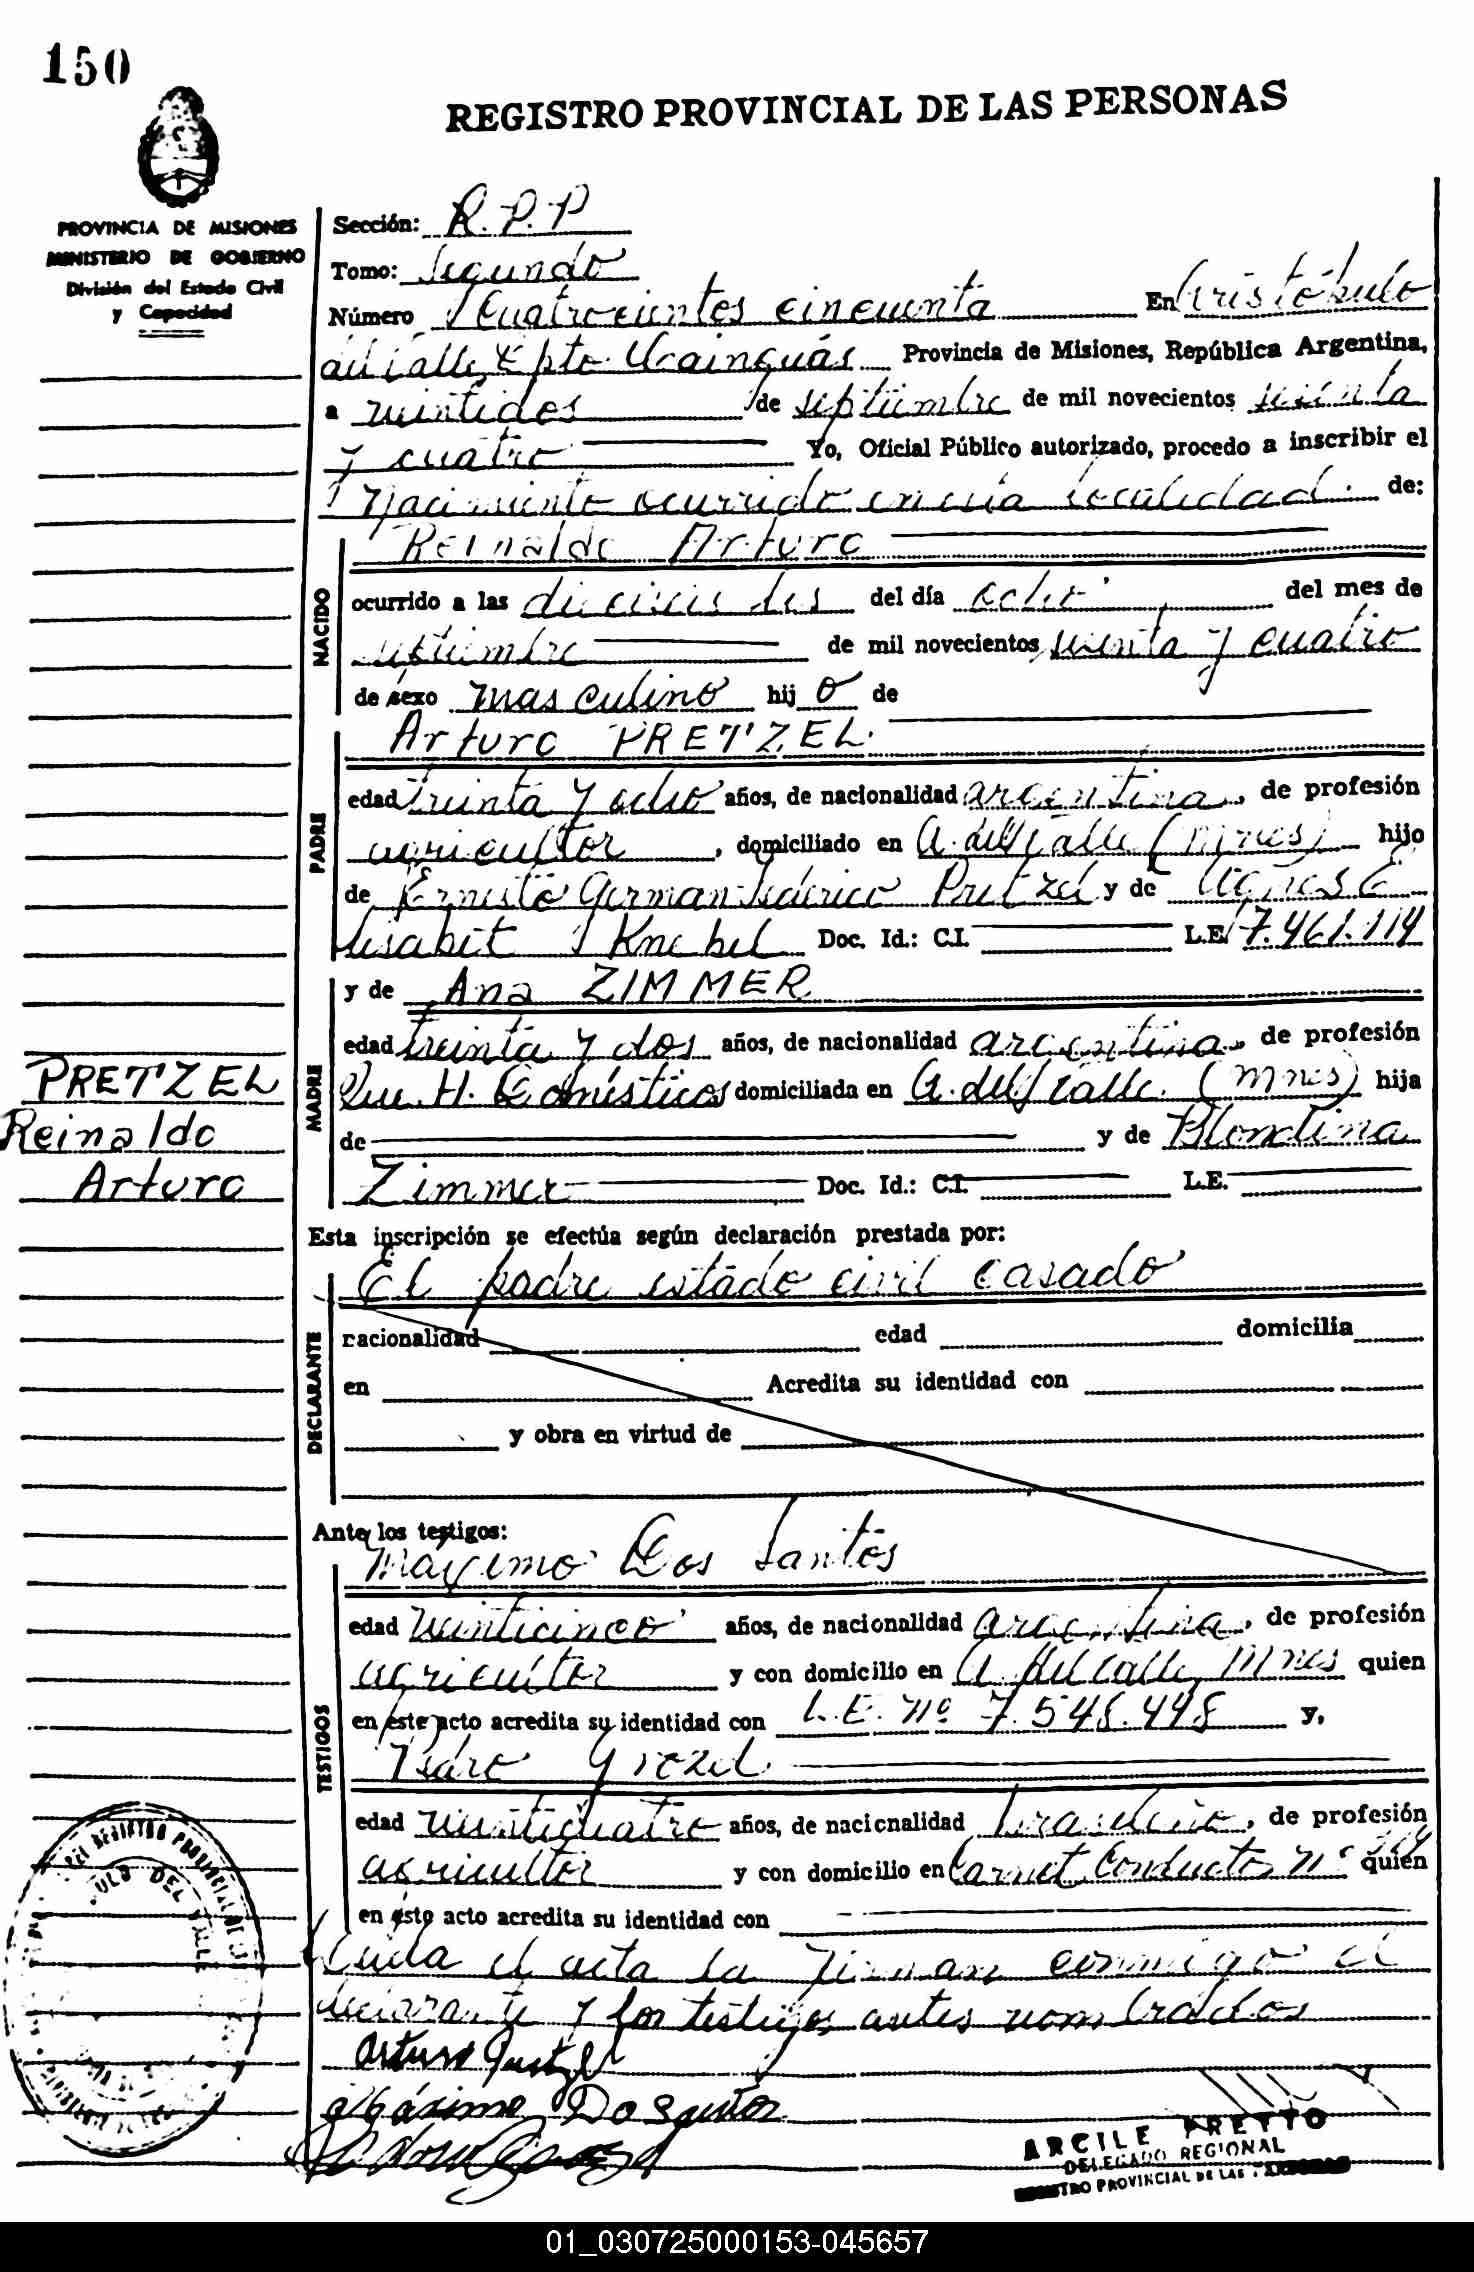 150
REGISTRO PROVINCIAL DE LAS PERSONAS
PROVINCIA DE MISIONES
MINISTERIO DE GOBIERNO
División del Estado Civil
y Capacidad
Sección: R.P.P
Tomo: Segundo
Número Cuatrocientos cincuenta En Aristóbulo
del Valle Dpto. Cainguás Provincia de Misiones, República Argentina,
a veintidos de septiembre de mil novecientos
y cuatro Yo, Oficial Público autorizado, procedo a inscribir el
Nacimiento ocurrido en esta localidad. de:
Reinaldo Arturo
NACIDO
ocurrido a las dieciseis hs del día ocho del mes de
septiembre de mil novecientos y cuatro
de sexo masculino hij o de
Arturo PRETZEL.
PADRE
edad treinta y ocho años, de nacionalidad argentina, de profesión
agricultor, domiciliado en A. del Valle (Mnes) hijo
de Ernesto German Federico Pretzel y de Agnes E
lisabet Knebel Doc. Id.: C.I. L.E. 7.461.114
y de Ana ZIMMER
MADRE
edad treinta y dos años, de nacionalidad argentina, de profesión
Que. H. Domésticos domiciliada en A. del Valle. (Mnes) hija
de y de Blondina
Zimmer Doc. Id.: C.I. L.E.
PRETZEL
Reinaldo
Arturo
Esta inscripción se efectúa según declaración prestada por:
El padre estado civil casado
DECLARANTE
nacionalidad edad domicilia
en Acredita su identidad con
y obra en virtud de
Ante los testigos:
Maximo Dos Santos
TESTIGOS
edad veinticinco años, de nacionalidad argentina, de profesión
agricultor y con domicilio en A. del Valle Mnes quien
en este acto acredita su identidad con L.E. nº 7.548.448 y,
Pedro
edad veinticuatro años, de nacionalidad brasileño, de profesión
agricultor y con domicilio en Carnet Conductor nº quien
en ésto acto acredita su identidad con
Leída el acta la firman conmigo el
declarante y los testigos antes nombrados
Arturo Pretzel
Máximo Do Santos
ARCILE PRETTO
DELEGADO REGIONAL
REGISTRO PROVINCIAL DE LAS PERSONAS
01_030725000153-045657